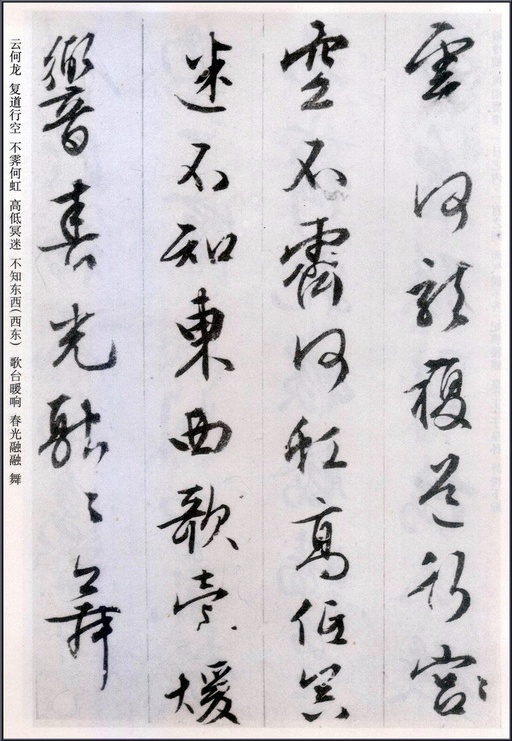 雲何龍複道行宮
空不霽何虹高低冥
迷不知東西歌臺煖
響春光融々舞
云何龙 复道行空 不霁何虹 高低冥迷 不知东西(西东) 歌台暖响 春光融融 舞